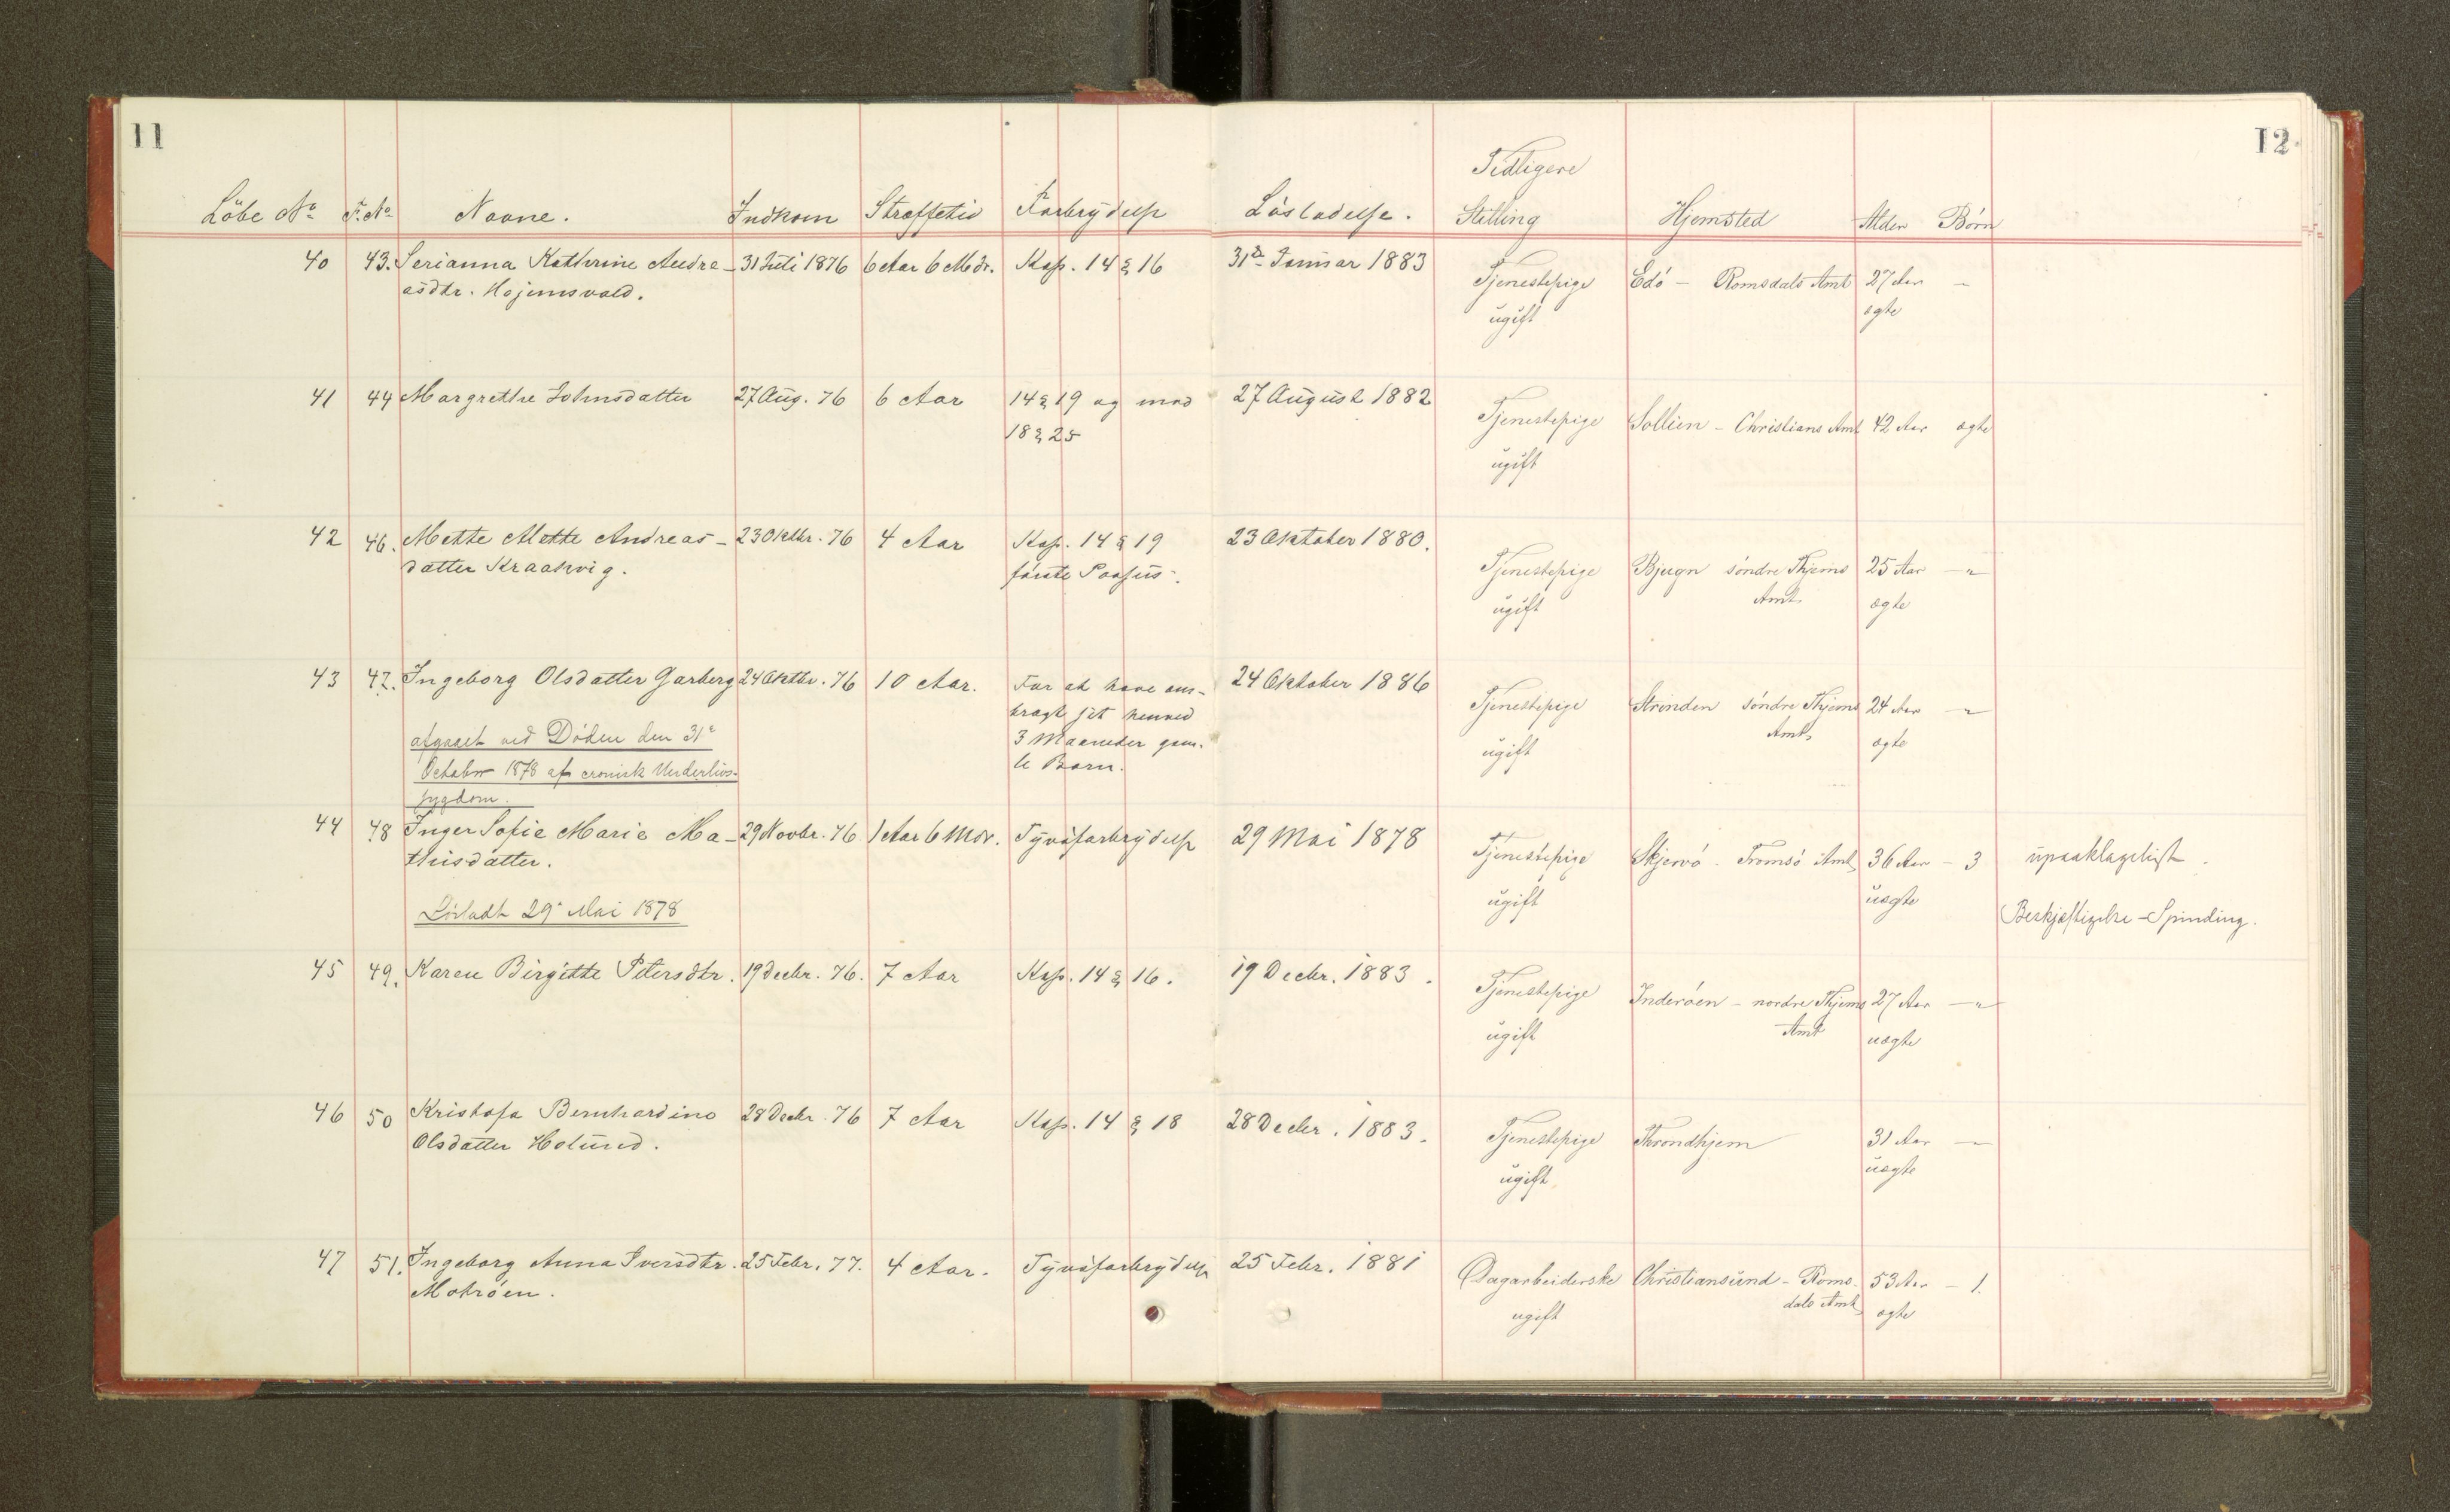 11
12
Tidligere
Löbe No F.No Navne. Indkom Straffetid Forbrydelse Lösladelse. Stilling Hjemsted Alder Börn
40 43. Serianna Kathrine Andre- 31 Juli 1876 6 Aar 6 Mdr. Kap. 14 § 16 31te Januar 1883 Tjenestepige Edö - Romsdals Amt 27 Aar -
asdtr. Hojemsvold. ugift ægte
41 44 Margrethe Johnsdatter 27 Aug. 76 6 Aar 14 § 19 og 27 August 1882 Tjenestepige Sollien - Christians Amt 42 Aar ægte
18 § 25 ugift
42 46. Mette Mette Andreas- 23 Oktbr. 76 4 Aar Kap. 14 § 19 23 Oktober 1880. Tjenestepige Bjugn söndre Thjems 25 Aar - "
datter Kraakvig. förste Passus. ugift Amt ægte
43 47. Ingeborg Olsdatter Garberg 24 Oktbr. 76 10 Aar. For at have om- 24 Oktober 1886 Tjenestepige Strinden söndre Thjems 24 Aar - "
bragt sit henved ugift Amt ægte
afgaaet ved Döden den 31te 3 Maaneder gam-
October 1878 af cronisk Underlivs- le Barn.
sygdom.
44 48 Inger Sofie Marie Ma- 29 Novbr. 76 1 Aar 6 Mdr. Tyvsforbrydelse 29 Mai 1878 Tjenestepige Skjervö - Tromsö Amt 36 Aar - 3 upaaklageligt.
thisdatter. ugift uægte
Lösladt 29 Mai 1878 Beskjæftigelse - Spinding.
45 49. Karen Birgitte Petersdtr. 19 Decbr. 76. 7 Aar Kap. 14 § 16. 19 Decbr. 1883. Tjenestepige Inderöen - nordre Thjems 27 Aar - "
ugift Amt uægte
46 50 Kristofa Bernhardine 28 Decbr. 76 7 Aar Kap. 14 § 18 28 Decbr. 1883. Tjenestepige Throndhjem 31 Aar -
Olsdatter Holund. ugift uægte
47 51. Ingeborg Anna Iversdtr. 25 Febr. 77. 4 Aar. Tyvsforbrydelse 25 Febr. 1881 Dagarbeiderske Christiansund - Roms- 53 Aar - 1.
Motröen. ugift dals Amt ægte